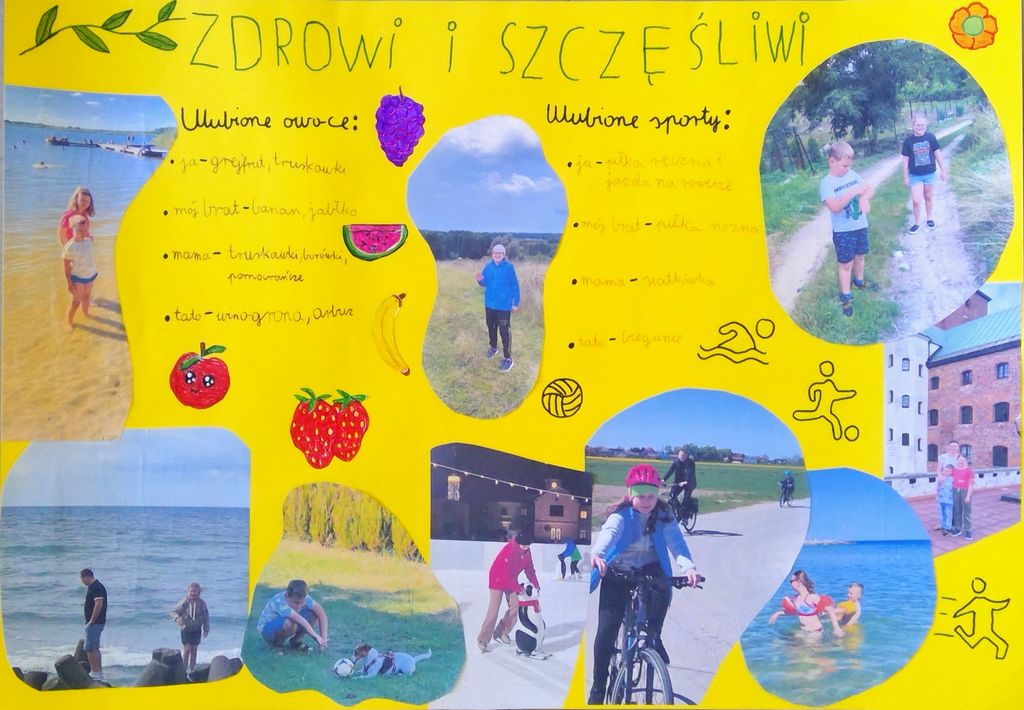 ZDROWI i SZCZĘŚLIWI
Ulubione owoce:
• ja - grejfrut, truskawki
• mój brat - banan, jabłko
• mama - truskawki, borówki,
pomarańcze
• tato - winogrona, arbuz
Ulubione sporty:
• ja - piłka ręczna i
jazda na rowerze
• mój brat - piłka nożna
• mama - siatkówka
• tato - bieganie